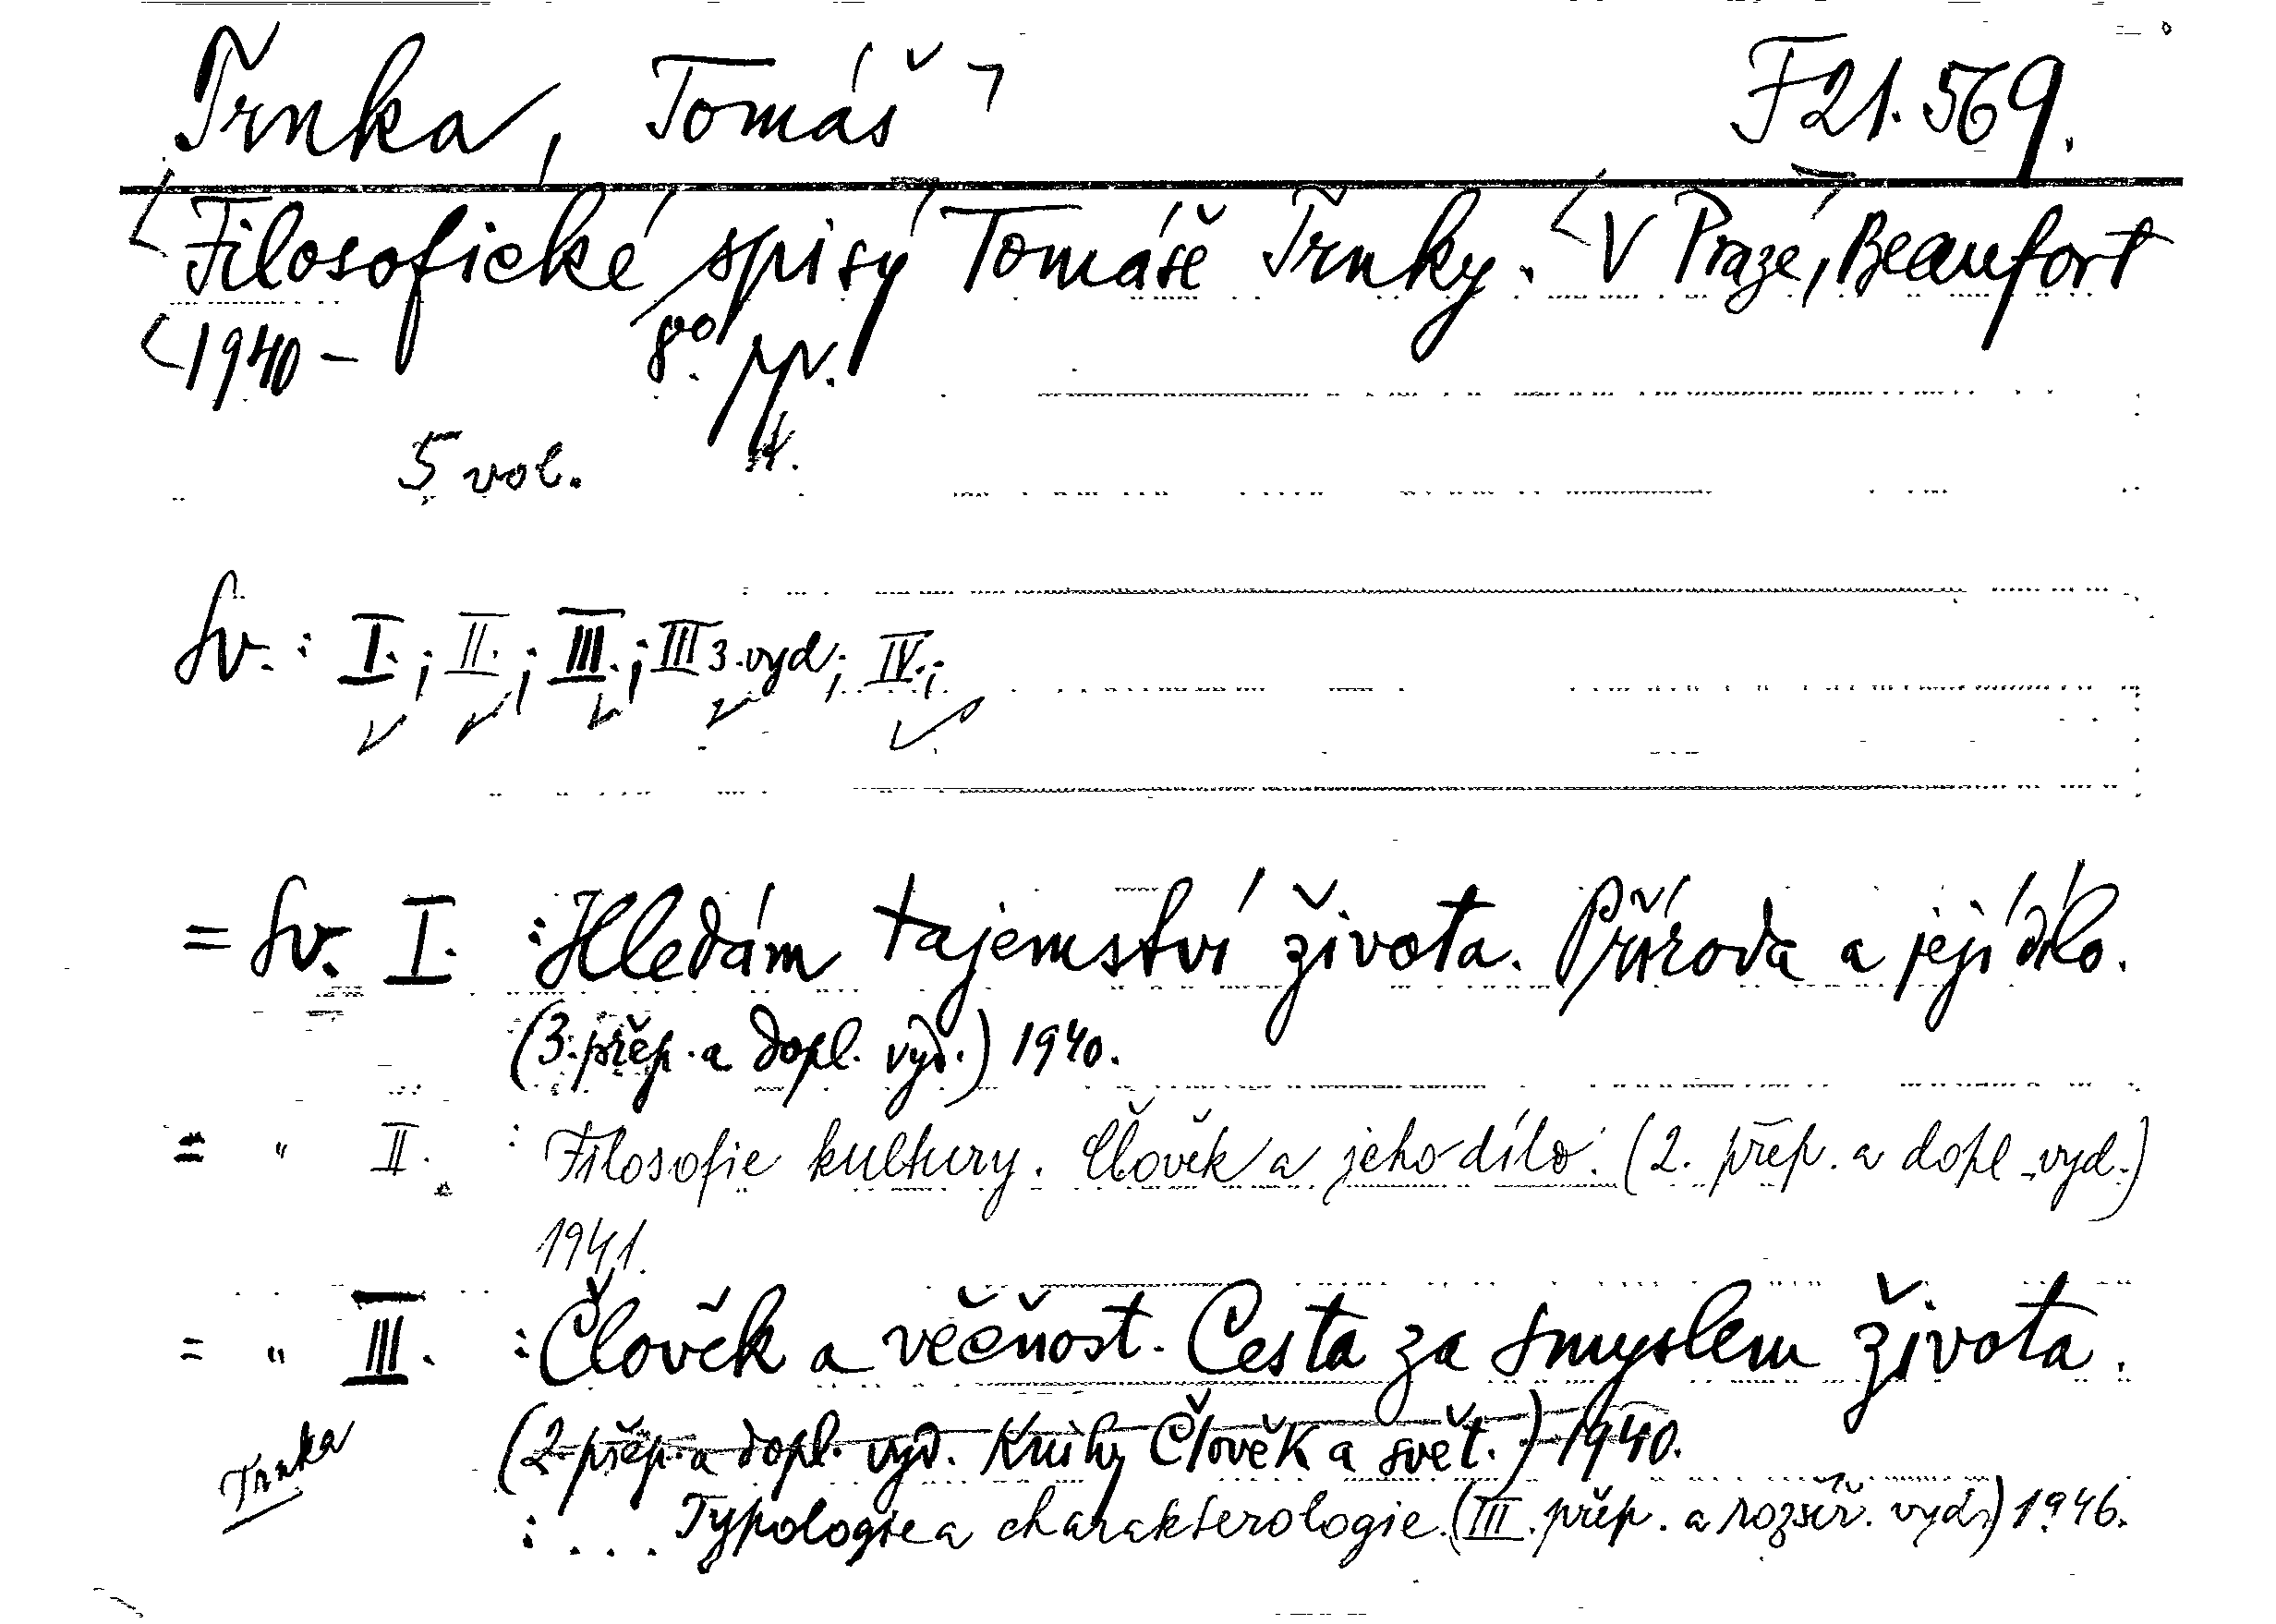 Trnka, Tomáš F 21.569.
Filosofické spisy Tomáše Trnky. V Praze, Beaufort
1940 – 8º. pp.
5 vol.
Sv.: I.; II.; III.; III 3.vyd; IV.;
= Sv. I. : Hledám tajemství života. Příroda a její dílo.
(3. přep. a dopl. vyd.) 1940.
= " II. : Filosofie kultury. Člověk a jeho dílo. (2. přep. a dopl. vyd.)
1941.
= " III. : Člověk a věčnost. Cesta za smyslem života.
(2. přep. a dopl. vyd. Knihy Člověk a svět.) 1940.
Trnka
: . . . Typologie a charakterologie. (III. přep. a rozšíř. vyd.) 1946.